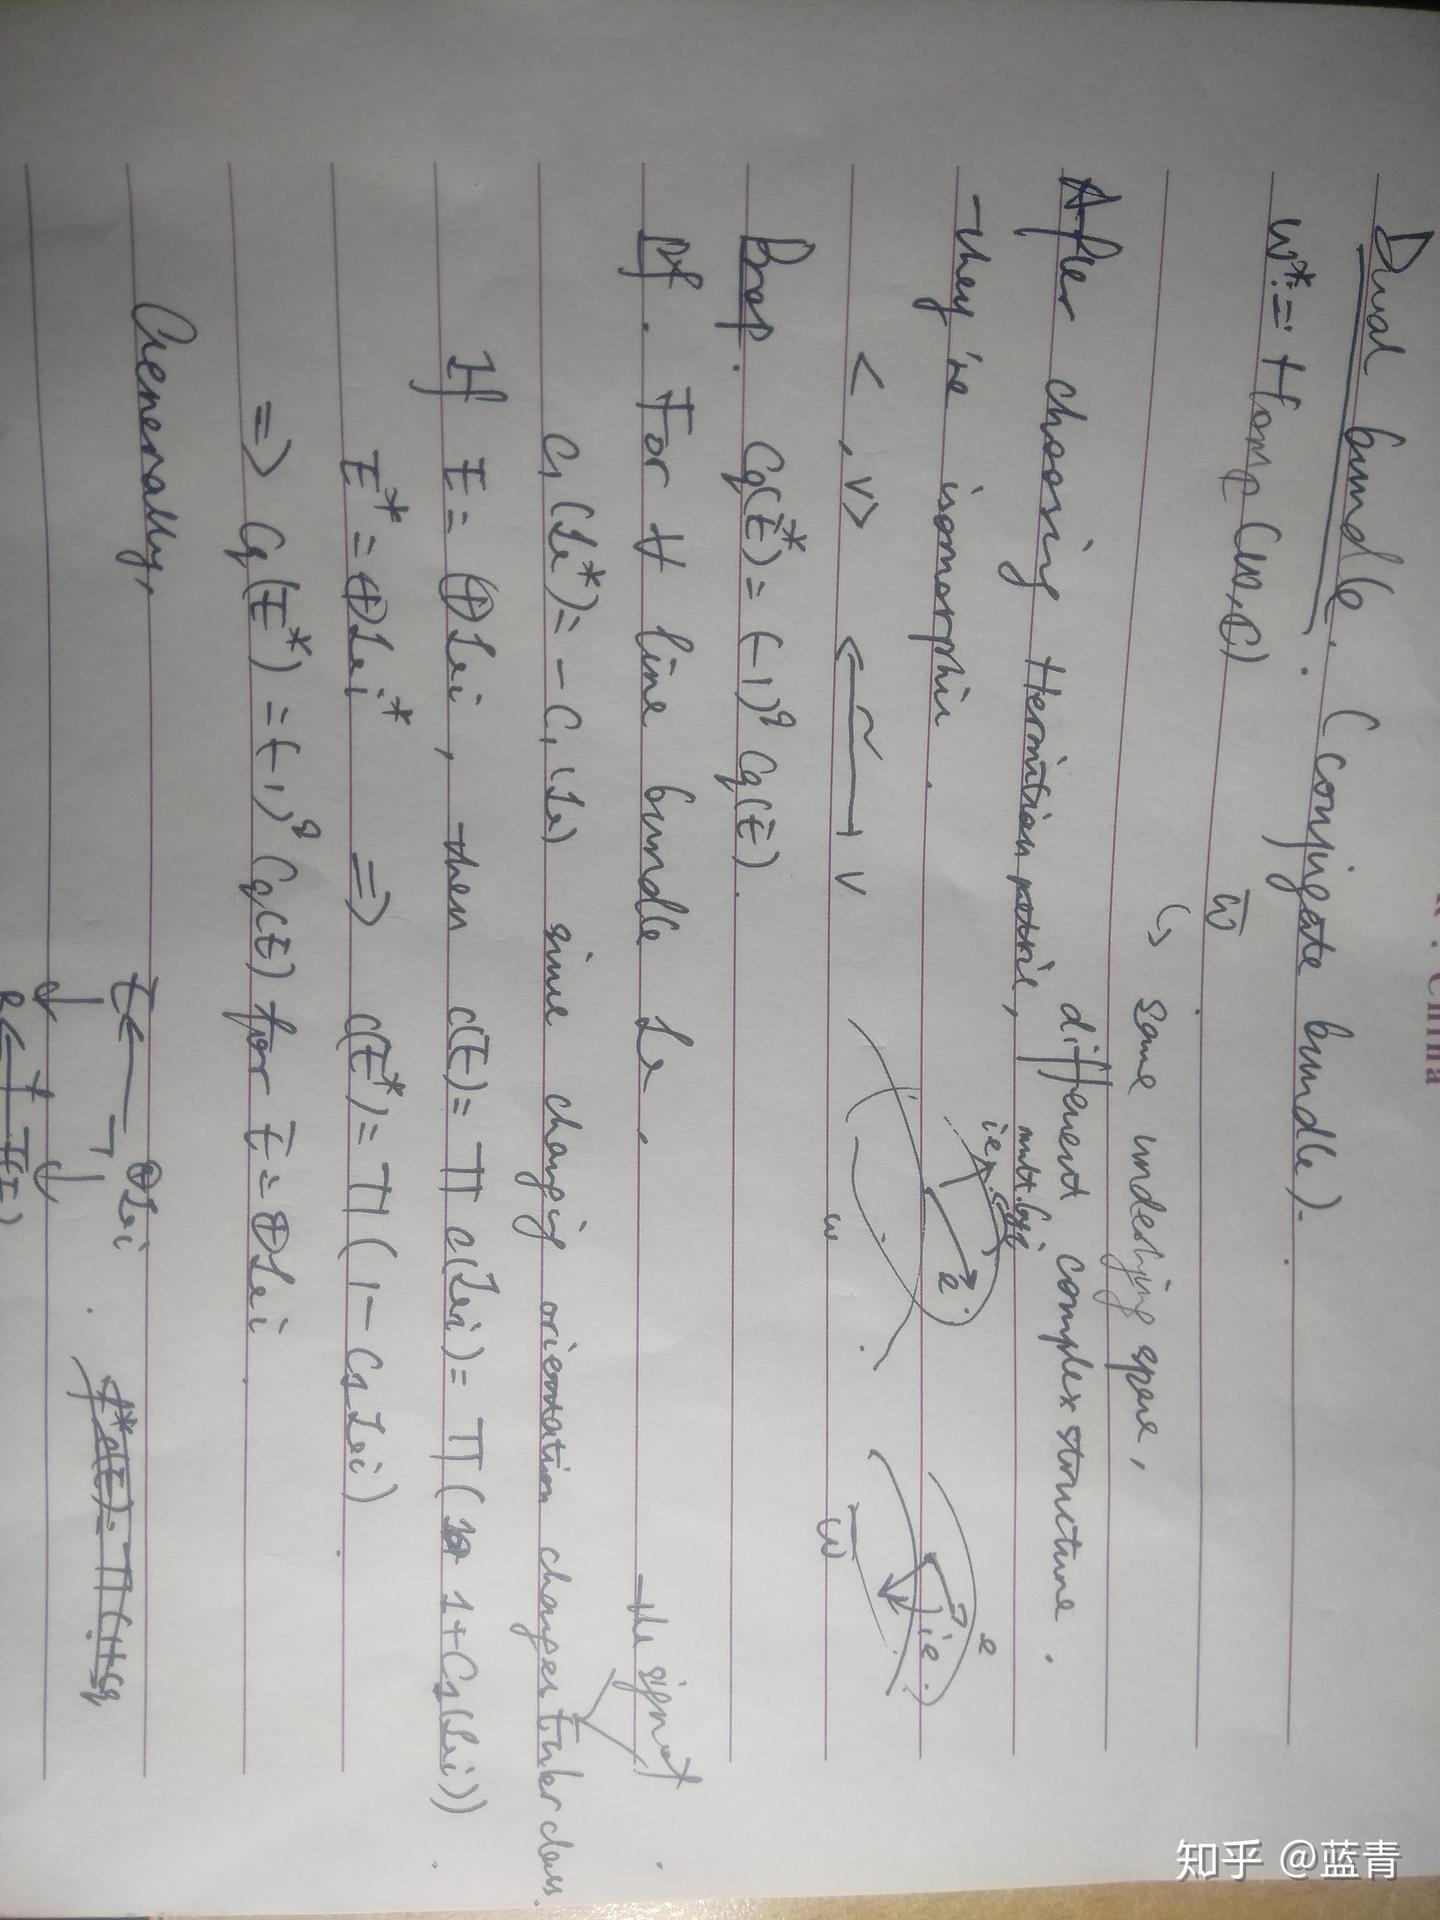 Dual bundle. (conjugate bundle).
ω* := Hom_C(ω, C)
ω̄
↪ same underlying space,
different complex structure.
After choosing Hermitian metric,
mult. by i
i.e.
they're isomorphic.
e
ie
e
< , v> ⟵~⊣ v
ω
ω̄
Prop. Cq(E*) = (-1)^q Cq(E).
Pf. For ∀ line bundle L,
the sign of
C₁(L*) = -C₁(L) since changing orientation changes Euler class.
If E = ⊕Li, then c(E) = Π c(Li) = Π(1+C₁(Li))
E* = ⊕Li* ⇒ c(E*) = Π(1-C₁Li)
⇒ Cq(E*) = (-1)^q Cq(E) for E = ⊕Li.
Generally,
E ← ⊕Li
↓ ↓
B ←f F(E)
f*c(E) = Π(1+C₁
China
知乎 @蓝青